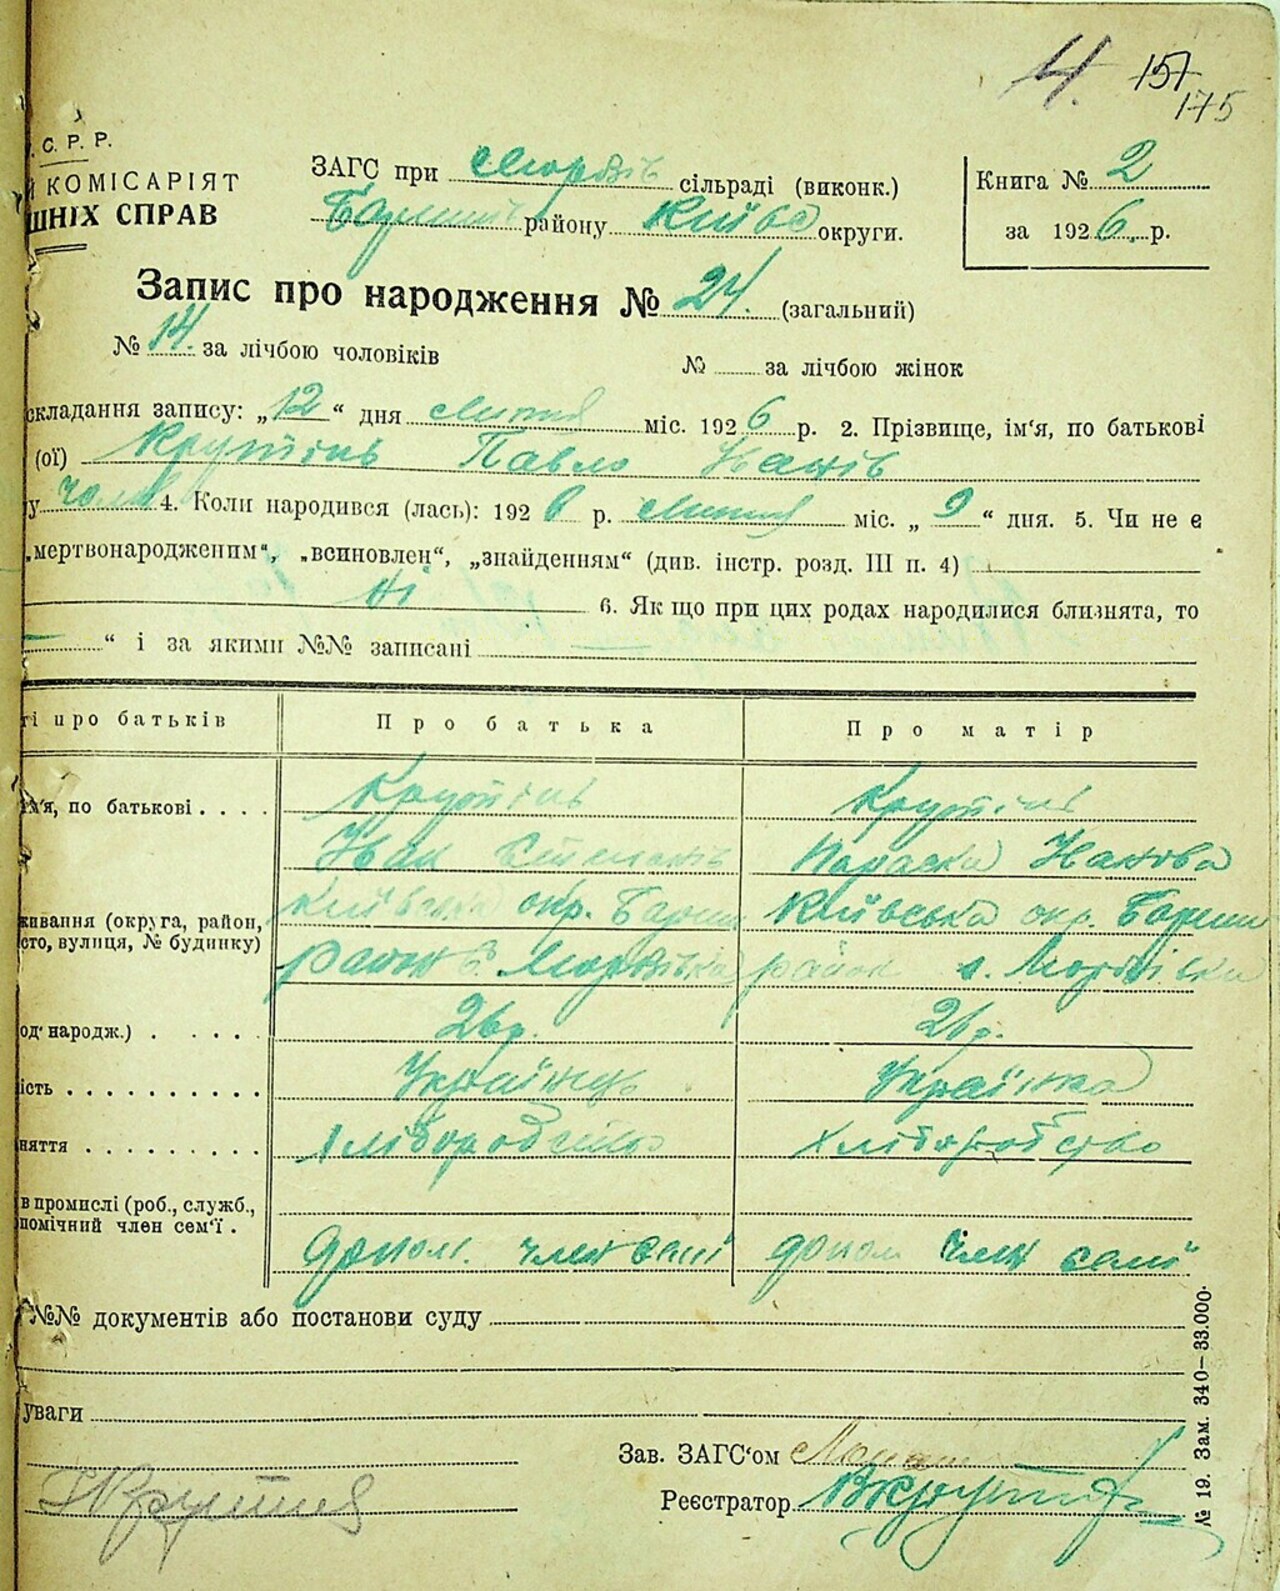 4. 157
175
. С. Р. Р.
й КОМІСАРІЯТ
ШНІХ СПРАВ
ЗАГС при Мордвів сільраді (виконк.)
Баришів району Київс округи.
Книга № 2
за 1926. р.
Запис про народження № 24. (загальний)
№ 14. за лічбою чоловіків № за лічбою жінок
складання запису: „12“ дня Лютня міс. 1926 р. 2. Прізвище, ім‘я, по батькові
(ої) Крутінь Павло Іванів
у чолов 4. Коли народився (лась): 1926 р. Лютня міс. „9“ дня. 5. Чи не є
„мертвонародженим“, „всиновлен“, „знайденням“ (див. інстр. розд. III п. 4)
ні 6. Як що при цих родах народилися близнята, то
— “ і за якими №№ записані —
ті про батьків Про батька Про матір
ім‘я, по батькові . . . . Крутінь Крутінь
Іван Степанів Параска Іванова
живання (округа, район, Київська окр. Бариш Київська окр. Бариш
сто, вулиця, № будинку) район с. Мордвівка район с. Мордвівка
од народж.) . . . . . 26р. 26р.
ість . . . . . . . . . . Українець Українка
няття . . . . . . . . . Хліборобство Хліборобство
в промислі (роб., служб.,
помічний член сем‘ї . допом. член семї допом член семї
№№ документів або постанови суду
уваги
Зав. ЗАГС‘ом
Реєстратор
№ 19. Зам. 340—33.000.